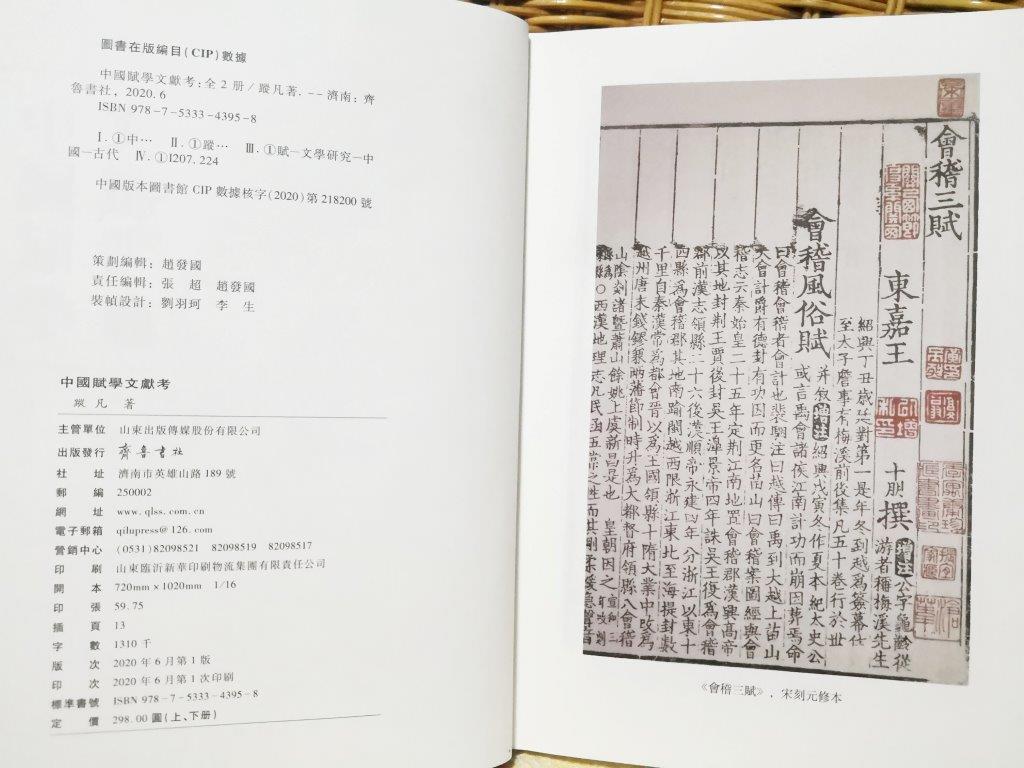 圖書在版編目(CIP)數據
中國賦學文獻考:全2册/蹤凡著.--濟南:齊
魯書社,2020.6
ISBN 978-7-5333-4395-8
Ⅰ.①中… Ⅱ.①蹤… Ⅲ.①賦—文學研究—中
國—古代 Ⅳ.①I207.224
中國版本圖書館CIP數據核字(2020)第218200號
策劃編輯:趙發國
責任編輯:張 超 趙發國
裝幀設計:劉羽珂 李 生
中國賦學文獻考
蹤凡 著
主管單位 山東出版傳媒股份有限公司
出版發行 齊魯書社
社 址 濟南市英雄山路189號
郵 編 250002
網 址 www.qlss.com.cn
電子郵箱 qilupress@126.com
營銷中心 (0531)82098521 82098519 82098517
印 刷 山東臨沂新華印刷物流集團有限責任公司
開 本 720mm×1020mm 1/16
印 張 59.75
插 頁 13
字 數 1310千
版 次 2020年6月第1版
印 次 2020年6月第1次印刷
標準書號 ISBN 978-7-5333-4395-8
定 價 298.00圓(上、下册)
會稽三賦
東嘉王 十朋 撰
增注 公字龜齡從
游者稱梅溪先生
紹興丁丑歲廷對第一是年冬到越爲簽幕仕
至太子詹事有梅溪前後集凡五十卷行於世
會稽風俗賦 并叙 增注 紹興戊寅冬作夏本紀太史公
或言禹會諸侯江南計功而崩因葬焉命
曰會稽會稽者會計也裴駰注曰越傳曰禹到大越上苗山
大會計爵有德封有功因而更名苗山曰會稽案圖經與會
稽志云秦始皇二十五年定荆江南地置會稽郡漢興高帝
以其地封荆王賈後封吳王濞景帝四年誅吳王復爲會稽
郡前漢志領縣二十六後漢順帝永建四年分浙江以東十
四縣爲會稽郡其地南踰閩越西限浙江東北至海提封數
千里自秦漢常爲都會晉以爲王國領縣十隋大業中改爲
越州唐末錢鏐兼兩藩節制時升爲大都督府領縣八會稽
山陰剡諸暨蕭山餘姚上虞新昌是也 皇朝因之
○西漢地理志凡民函五常之性而其剛柔緩急聲音
《會稽三賦》,宋刻元修本